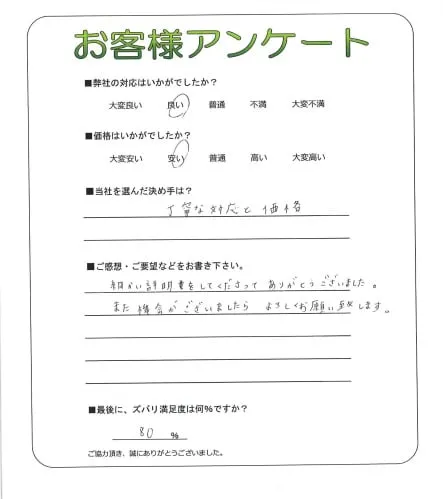 お客様アンケート
■弊社の対応はいかがでしたか?
大変良い 良い 普通 不満 大変不満
■価格はいかがでしたか?
大変安い 安い 普通 高い 大変高い
■当社を選んだ決め手は?
丁寧な対応と価格
■ご感想・ご要望などをお書き下さい。
細かい説明書をしてくださって ありがとうございました。
また機会がございましたら よろしくお願い致します。
■最後に、ズバリ満足度は何%ですか?
80 %
ご協力頂き、誠にありがとうございました。